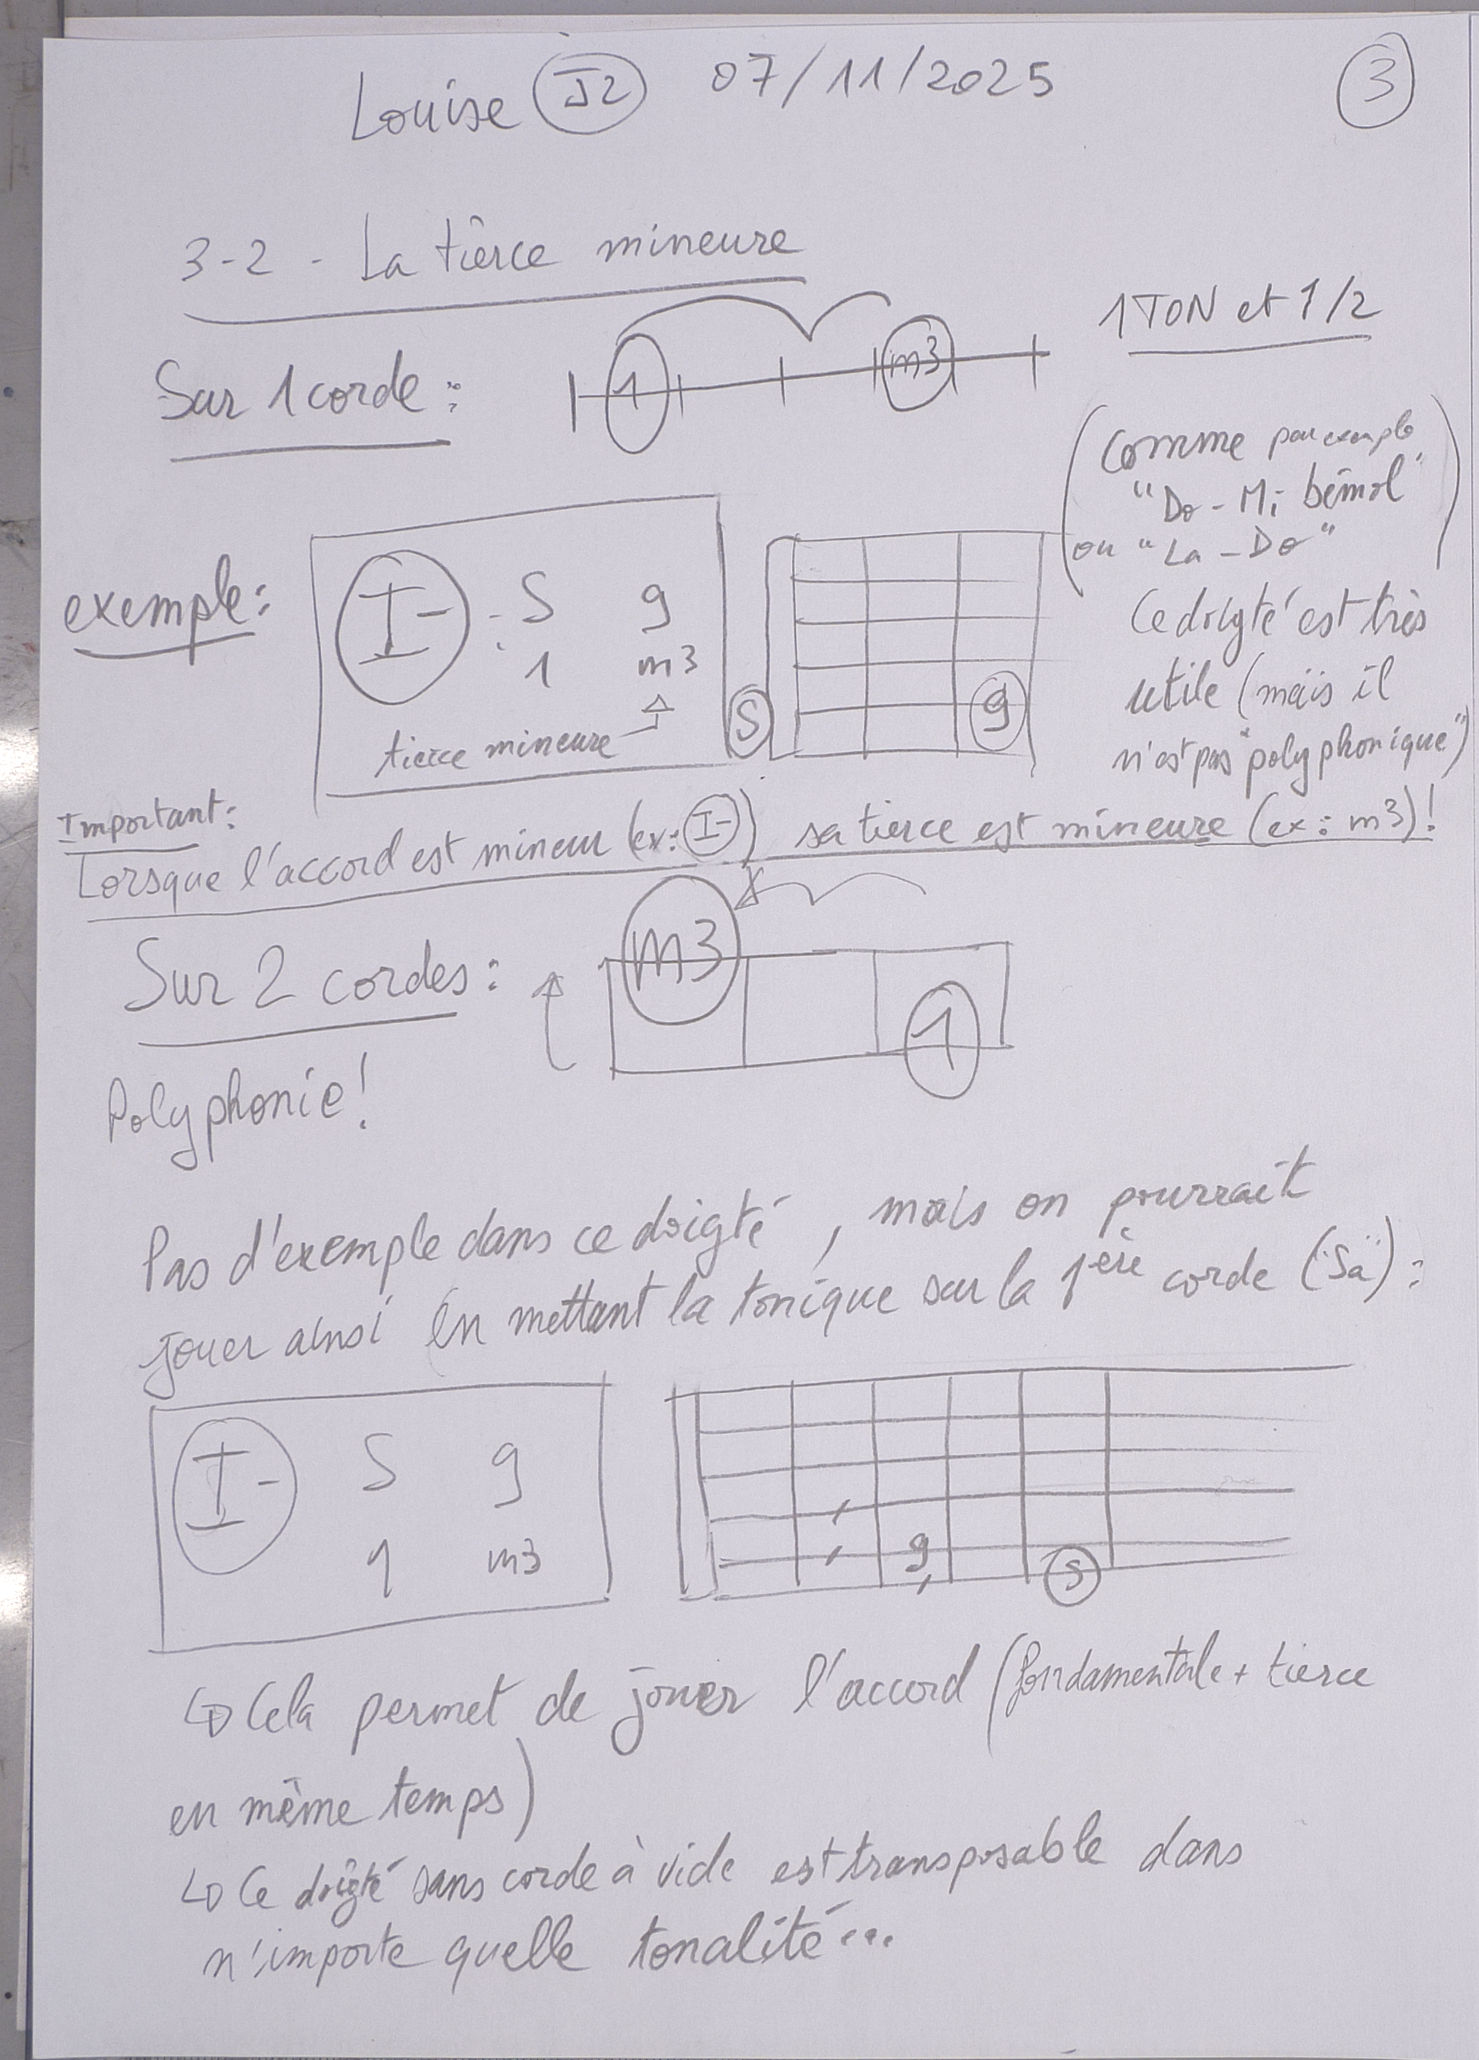 Louise J2 07/11/2025 3
3-2 - La tierce mineure
1 TON et 1/2
Sur 1 corde : 1 m3
(comme par exemple
"Do - Mi bémol"
ou "La - Do")
exemple :
I- : S g
1 m3
tierce mineure
S g
Ce doigté est très
utile (mais il
n'est pas "polyphonique")
Important :
Lorsque l'accord est mineur (ex : I-) sa tierce est mineure (ex : m3) !
Sur 2 cordes : m3 1
Polyphonie !
Pas d'exemple dans ce doigté, mais on pourrait
jouer ainsi en mettant la tonique sur la 1ère corde ("Sa") :
I- S g
1 m3
g S
Cela permet de jouer l'accord (fondamentale + tierce
en même temps)
Ce doigté sans corde à vide est transposable dans
n'importe quelle tonalité...